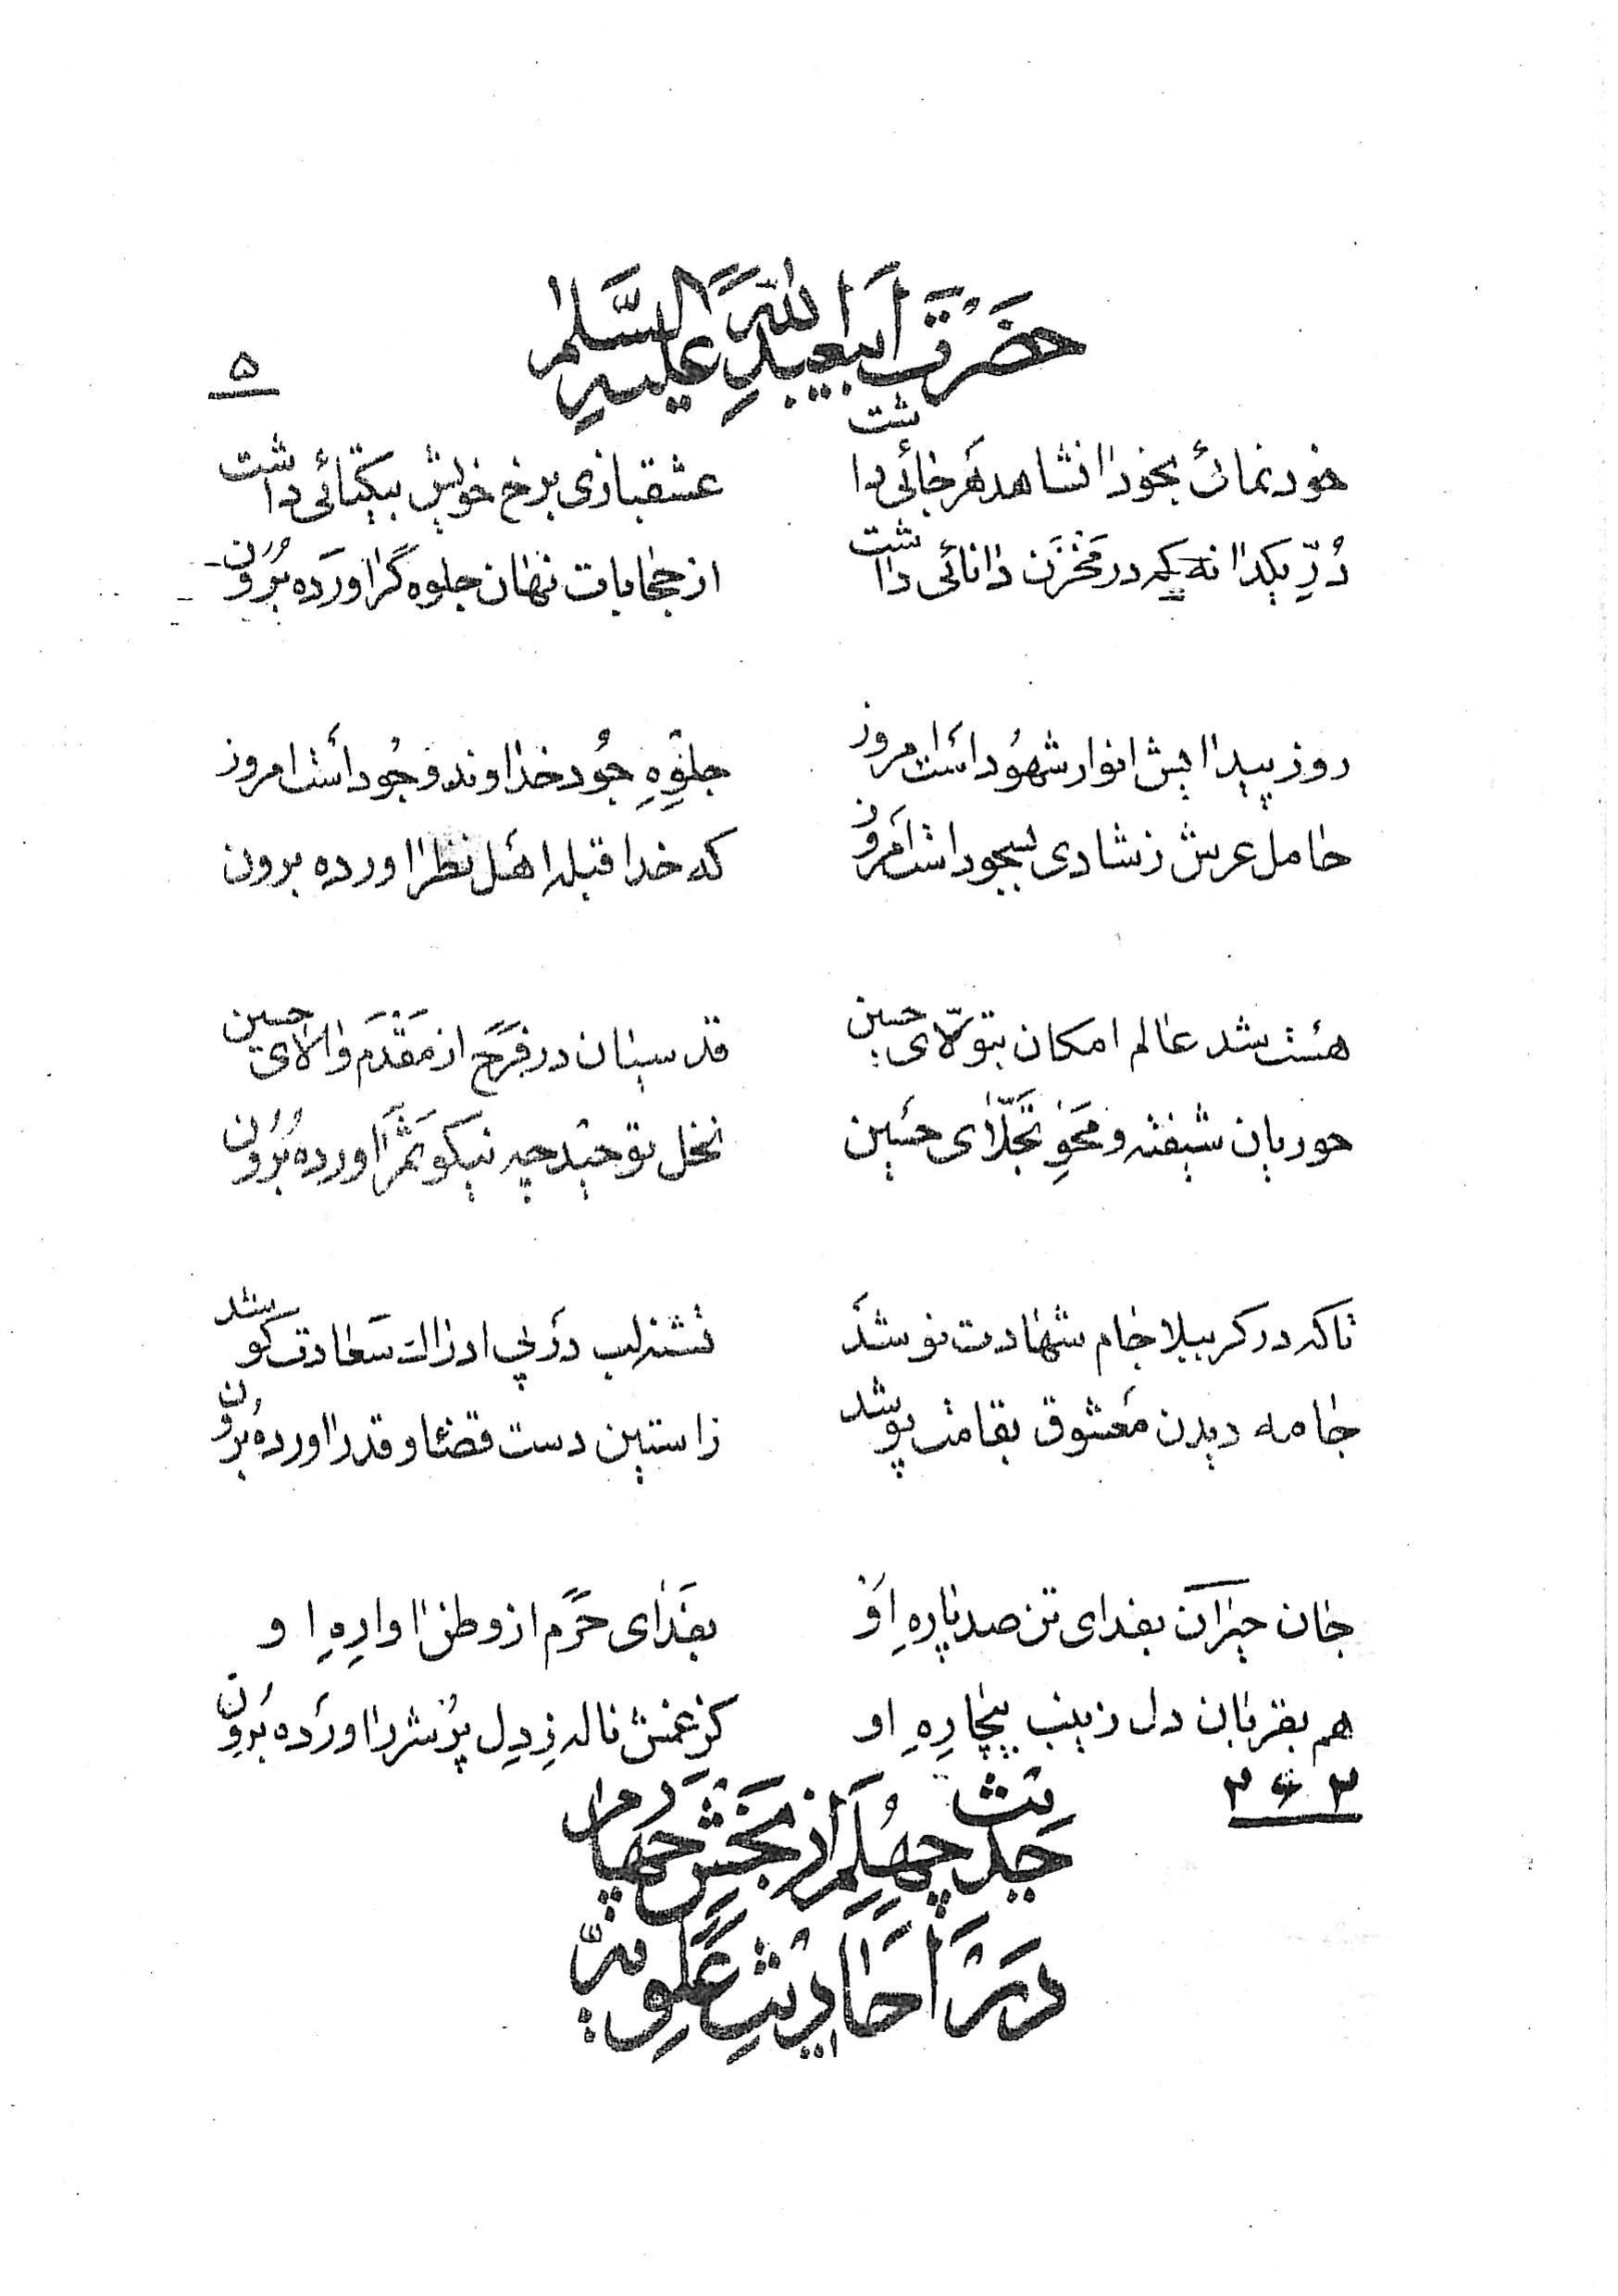 حَضْرَتِ اَبٰاعَبْدِاللهِ عَلَیْهِ السَّلٰام
۵
خود نمائی بخود انشاهد هَر جٰائی داشت    عشقبازی برخ خویش بیکتائی داشت
دُرِّ یکدانه که در مَخْزَنِ دٰانائی داشت    از حجٰابات نهٰان جلوه گر اورَده بُرُون
روز پیدایش انوار شهُود است امروز    جلوِهِ جُود خداوند وجُود است امروز
حٰامل عرش ز شادی بسجود است امروز    که خدا قبله اهل نظر اورده برون
هست شد عٰالم امکان بتولّای حسین    قدسیان در فَرَح از مَقْدَم وٰالای حسین
حوریان شیفته و مَحْوِ تَجَلّٰای حسین    نخل توحید چه نیکو ثَمَر اورده بُرُون
تا که در کربلا جٰام شهٰادت نوشد    تشنه لب در پی ادراک سَعٰادت کوشد
جٰامه دیدن مَعشوق بقامت پوشد    ز استین دست قضٰا و قدر اورده برُون
جٰان جیران بفدای تن صد پاره اِو    بفدٰای حَرَم از وطن اوارِه اِو
هم بقربٰان دل زینب بیچٰارِه اِو    کز غمش ناله زِ دِل پر شرر اورَده بُرون
۲۶۳
حَدیث چِهِلُم اَز بَخْشِ چَهٰارم
دَر اَحٰادیثِ عَلَویّه